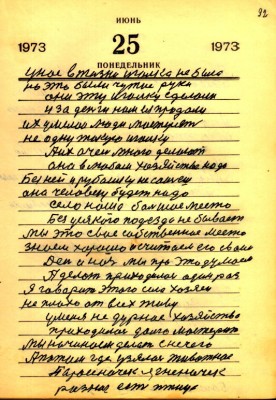 92
ИЮНЬ
1973 25 1973
ПОНЕДЕЛЬНИК
у нас в жизни иголка не была
но это были чужие руки
они эту иголку сделали
и за деньги нам их продали
их умелой люди мастерят
не одну такую иголку
Аих очен много делают
она в любом хозяйстве надо
Без ней и рубашки не сошеш
она человеку будет надо
село наша большое место
Без усякого подезда не бывает
Мы это свае собственное место
знаем хорошо и считаем его своим
Ден и ноч мы про это думаем
А делат приходилос один раз
Я говарит этого село хозяен
не плохо от всех живу
у меня не дурное хозяйство
приходилос долго мастерит
Мы начинаем делат с нечего
А потом где узялос животное
Паросеночек ягненочек
разное ест птица